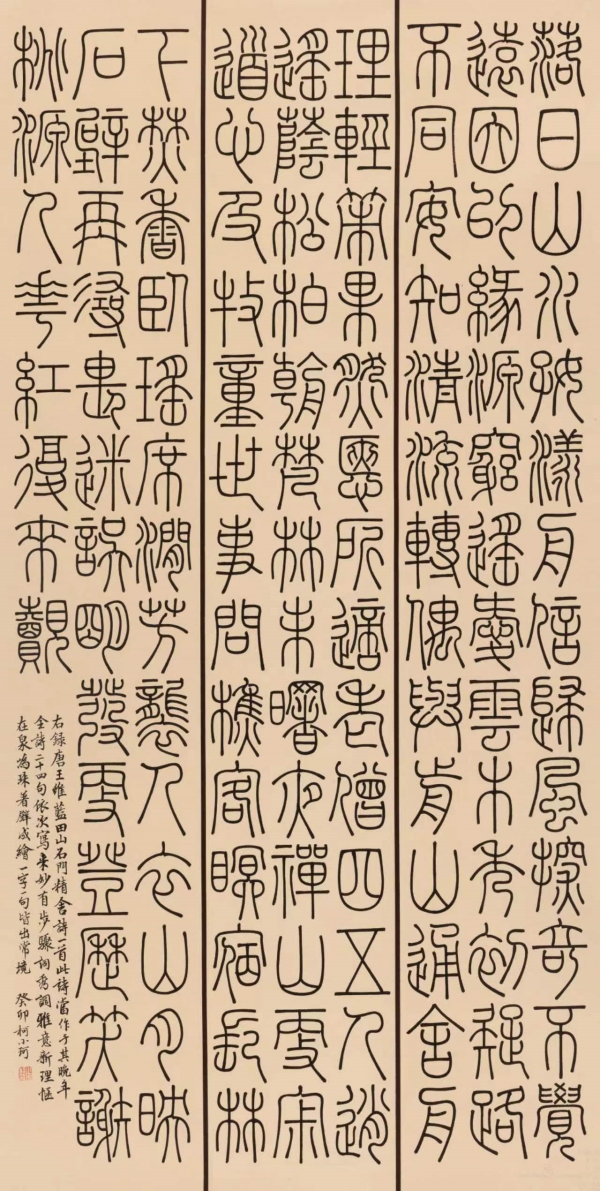 落日山水好漾舟信歸風探奇不覺
遠因以緣源窮遙愛雲木秀初疑路
不同安知清流轉偶與前山通舍舟
理輕策果然愜所適老僧四五人逍
遙蔭松柏朝梵林未曙夜禪山更寂
道心及牧童世事問樵客暝宿長林
下焚香臥瑤席澗芳襲人衣山月映
石壁再尋畏迷誤明發更登歷笑謝
桃源人花紅復來覿
右錄唐王維藍田山石門精舍詩一首此詩當作于其晚年
全詩二十四句依次寫來妙有步驟詞秀調雅意新理愜
在泉為珠著壁成繪一字一句皆出常境 癸卯